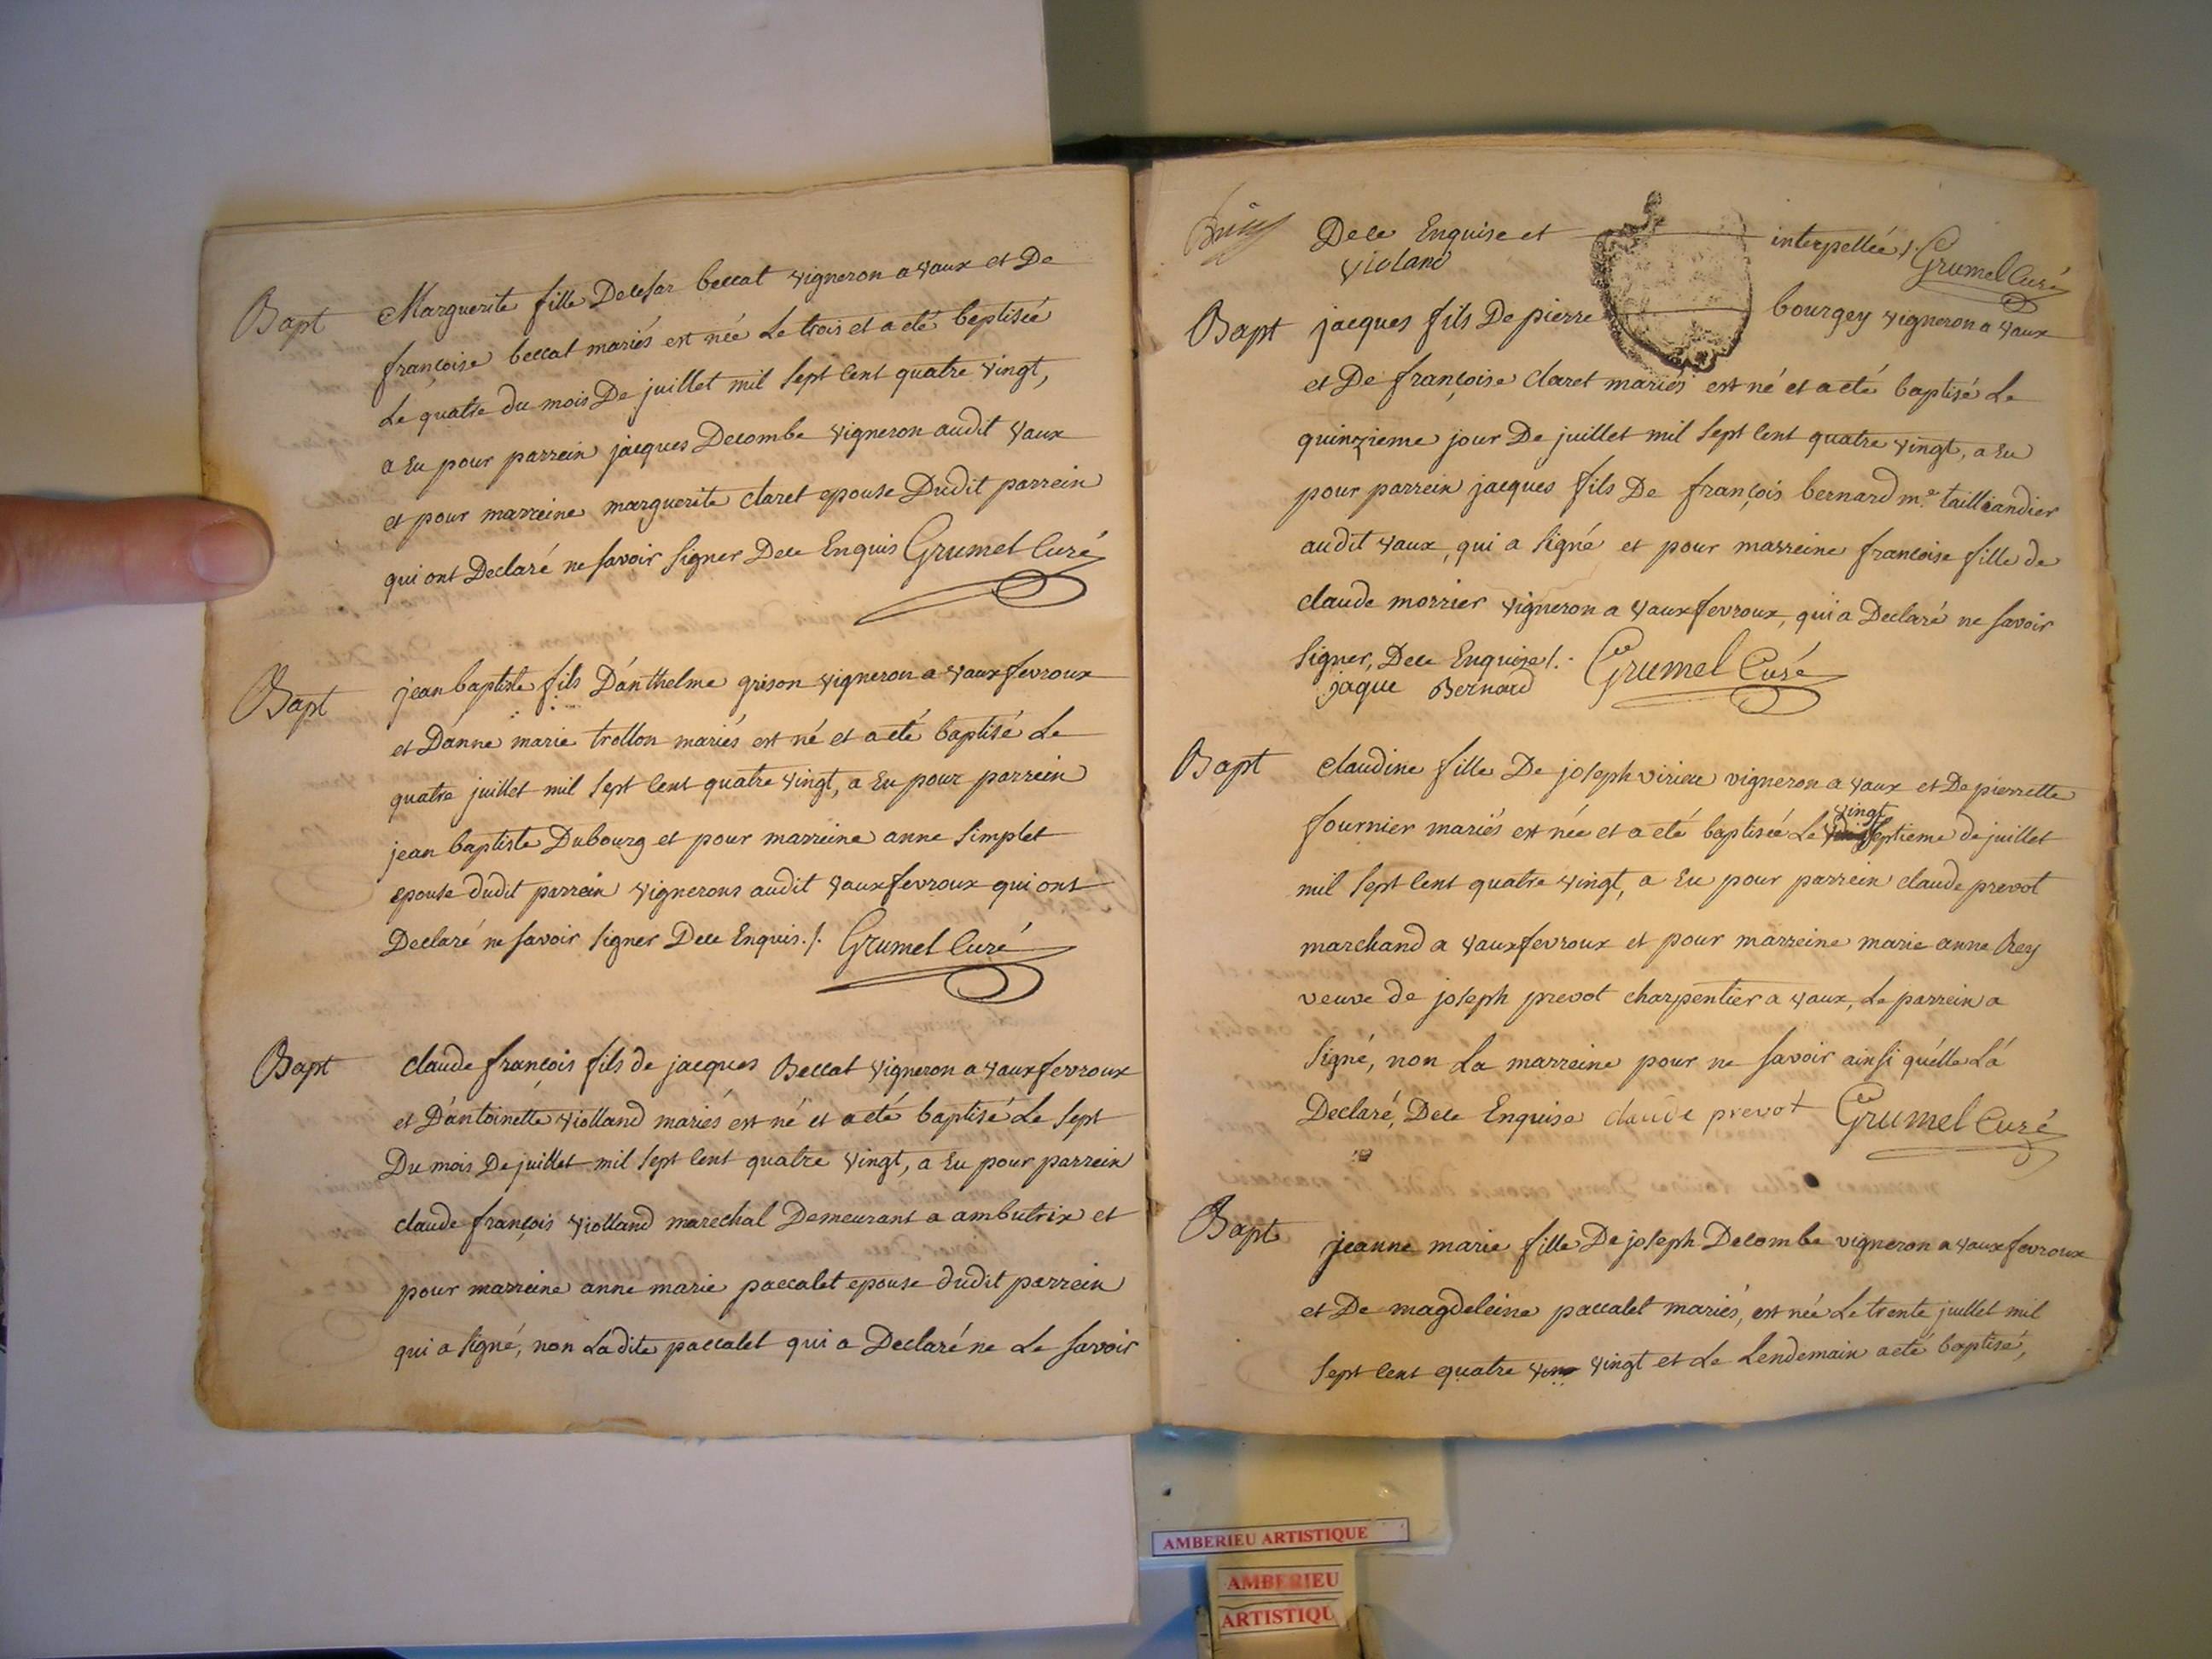 Bapt Marguerite fille De cesar beccat vigneron a vaux et De
françoise beccat mariés est née Le trois et a eté beptisée
Le quatre du mois De juillet mil sept cent quatre vingt,
a Eu pour parrein jacques Decombe vigneron audit vaux
et pour marreine marguerite claret epouse Dudit parrein
qui ont Declaré ne savoir signer De ce Enquis Grumet Curé
Bapt jean baptiste fils D'anthelme grison vigneron a vaux fevroux
et D'anne marie trollon mariés est né et a eté baptisé Le
quatre juillet mil sept cent quatre vingt, a Eu pour parrein
jean baptiste Dubourg et pour marreine anne simplet
epouse dudit parrein vignerons audit vaux fevroux qui ont
Declaré ne savoir signer De ce Enquis ./. Grumet Curé
Bapt claude françois fils de jacques Beccat vigneron a vaux fevroux
et D'antoinette violland mariés est né et a eté baptisé Le sept
Du mois De juillet mil sept cent quatre vingt, a Eu pour parrein
claude françois violland marechal Demeurant a ambutrix et
pour marreine anne marie paccalet epouse dudit parrein
qui a signé, non Ladite paccalet qui a Declaré ne Le savoir
De ce Enquise et interpellée ./. Grumel Curé
violand
Bapt jacques fils De pierre bourgey vigneron a vaux
et De françoise claret mariés est né et a eté baptisé Le
quinzieme jour De juillet mil sept cent quatre vingt, a Eu
pour parrein jacques fils De françois bernard me. tailliandier
audit vaux, qui a signé et pour marreine francoise fille de
claude morrier vigneron a vaux fevroux, qui a Declaré ne savoir
signer, De ce Enquise ./. Grumel Curé
jaque Bernard
Bapt claudine fille De joseph virieu vigneron a vaux et De pierrette
fournier mariés est née et a eté baptisée Le vingt septieme de juillet
mil sept cent quatre vingt, a Eu pour parrein claude prevot
marchand a vaux fevroux et pour marreine marie anne Rey
veuve de joseph prevot charpentier a vaux, Le parrein a
signé, non La marreine pour ne savoir ainsi qu'elle L'a
Declaré, De ce Enquise claude prevot Grumel Curé
Bapt jeanne marie fille De joseph Decombe vigneron a vaux fevroux
et De magdeleine paccalet mariés, est née Le trente juillet mil
sept cent quatre vingt et Le Lendemain a eté baptisé,
AMBERIEU ARTISTIQUE
AMBERIEU
ARTISTIQU